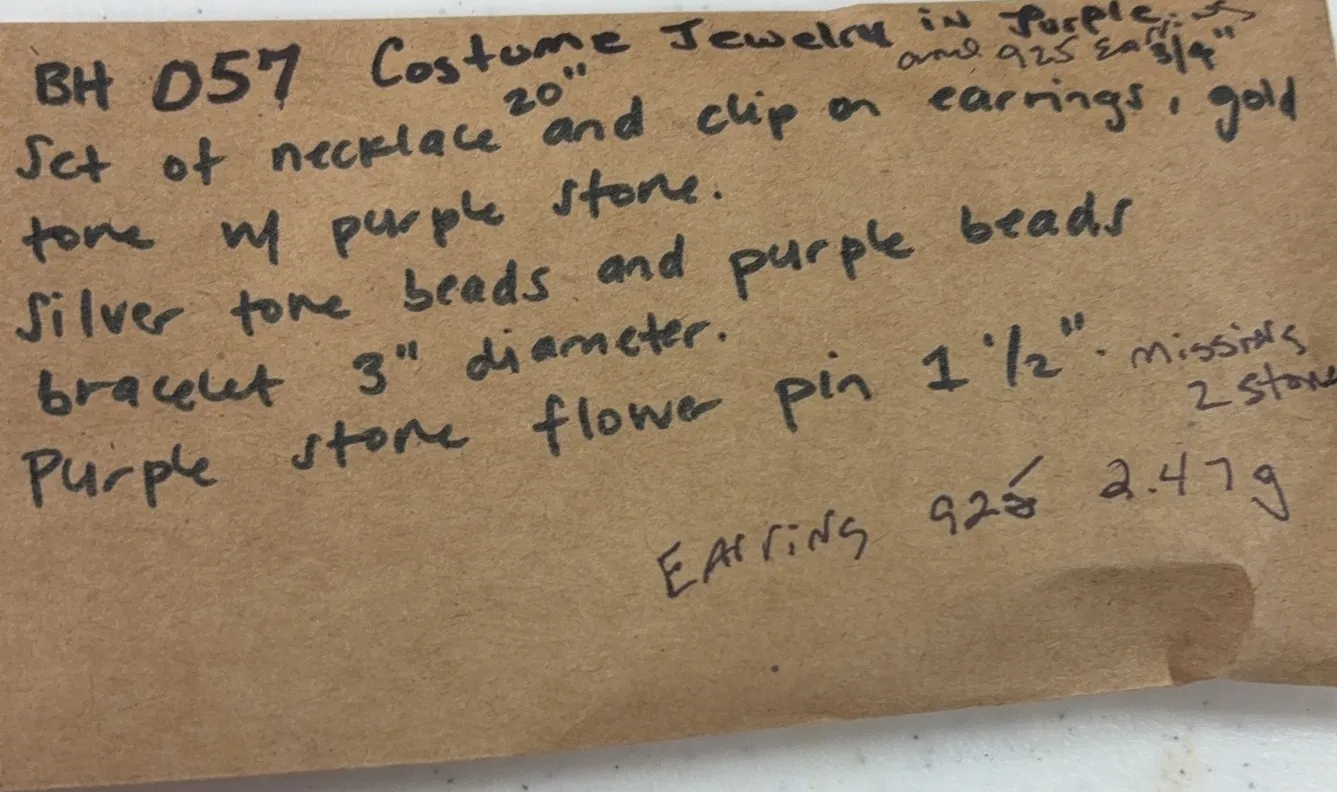 BH 057 Costume Jewelry in Purple
and 925 Earrings
Set of necklace 20" and clip on earrings, 3/4" gold
tone w/ purple stone.
Silver tone beads and purple beads
bracelet 3" diameter.
Purple stone flower pin 1 1/2". missing
2 stone
EArriNg 925 2.47g